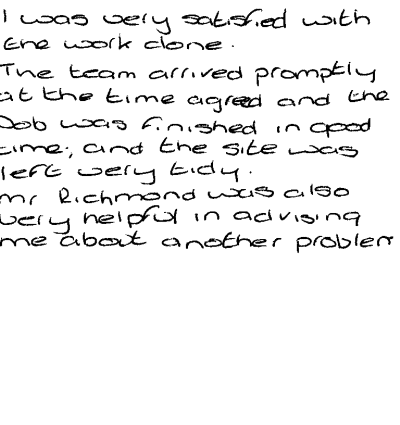 I was very satisfied with
the work done.
The team arrived promptly
at the time agreed and the
Job was finished in good
time, and the site was
left very tidy.
Mr Richmond was also
very helpful in advising
me about another problem